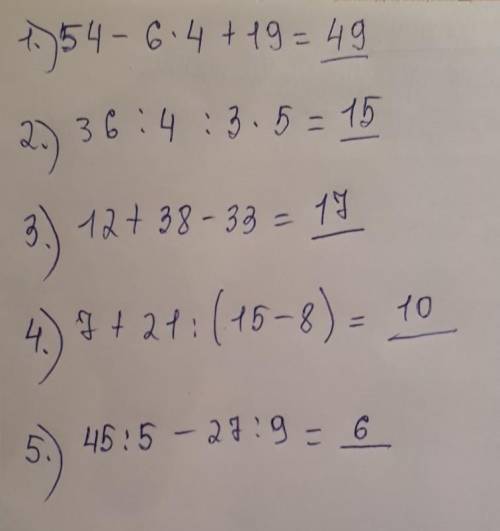 1.) 54 - 6 · 4 + 19 = 49
2.) 36 : 4 : 3 · 5 = 15
3.) 12 + 38 - 33 = 17
4.) 7 + 21 : (15 - 8) = 10
5.) 45 : 5 - 27 : 9 = 6